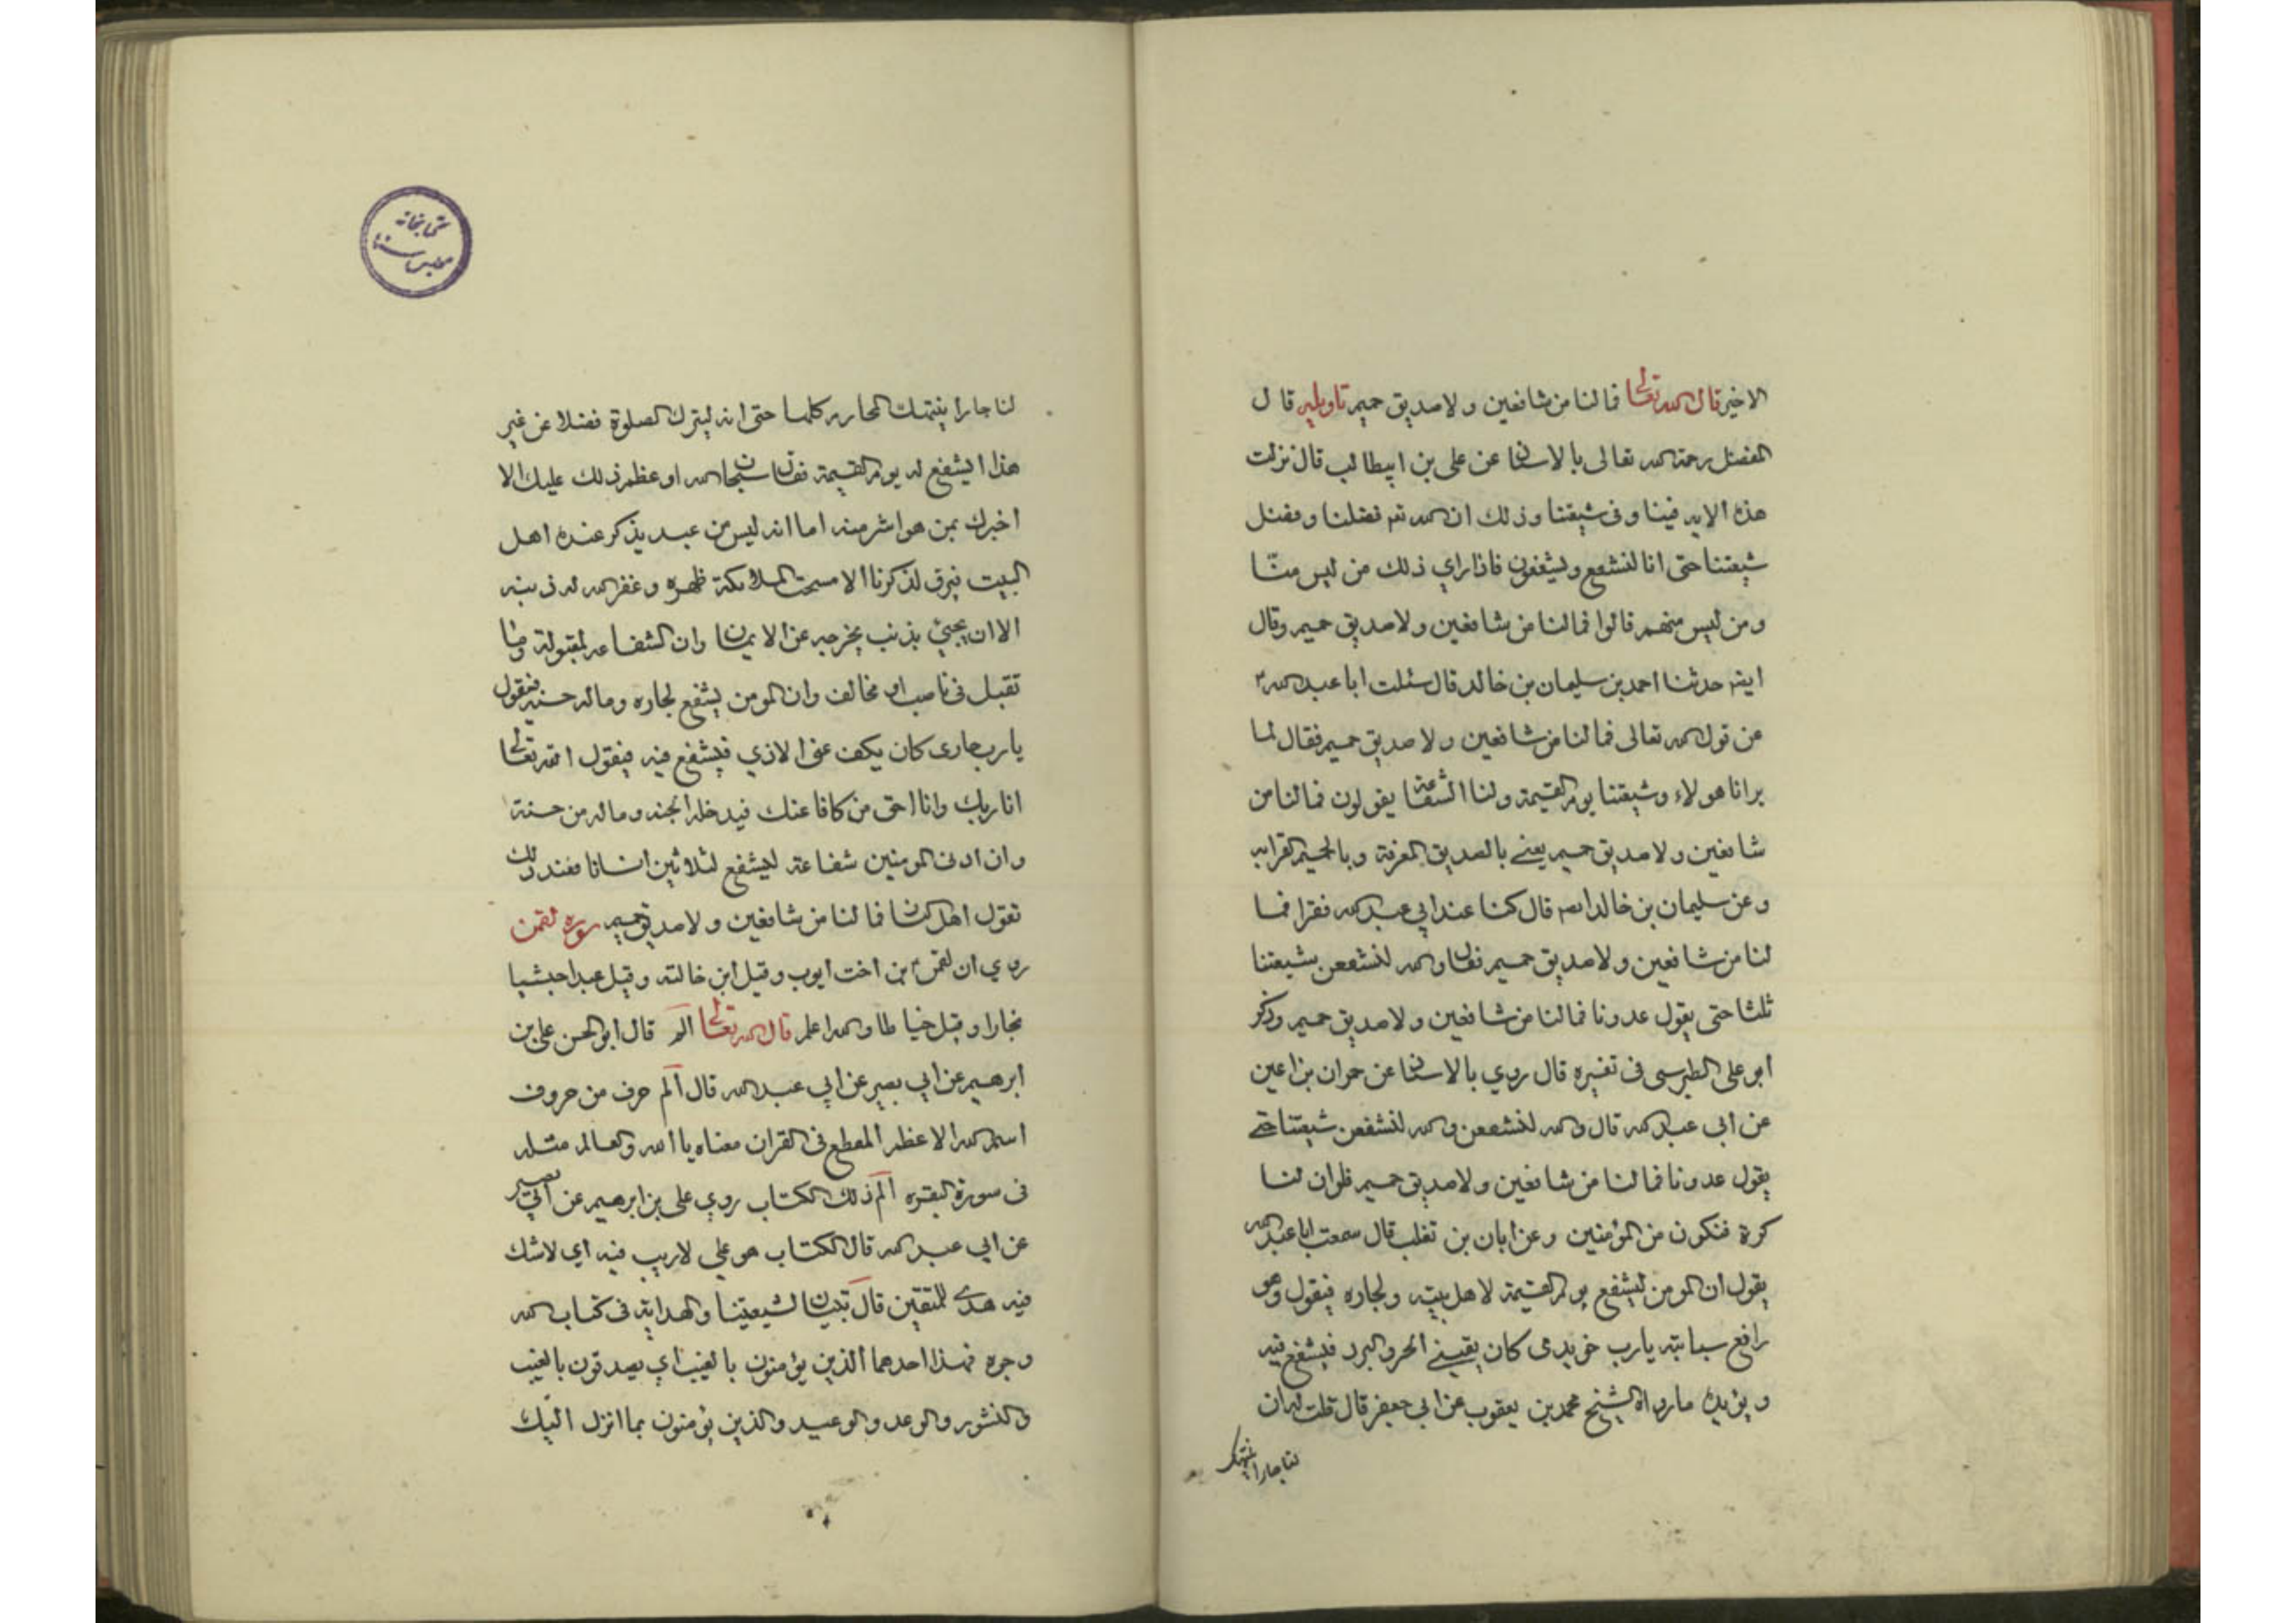 الاخير قال الله تعالى فما لنا من شافعين ولا صديق حميم تاويله قال
الفضل رحمة الله تعالى بالاسناد عن علي بن ابيطالب قال نزلت
هذه الايه فينا وفي شيعتنا وذلك ان الله تعه فضلنا وفضل
شيعتنا حتى انا لنشفع وليشفعون فاذا راي ذلك من ليس منّا
ومن ليس منهم قالوا فما لنا من شافعين ولا صديق حميم وقال
ايضه حدثنا احمد بن سليمان بن خالد قال سئلت ابا عبد الله
عن قول الله تعالى فما لنا من شافعين ولا صديق حميم فقال لما
يرانا هولاء وشيعتنا يوم القيمة ولنا الشفاعة يقولون فما لنا من
شافعين ولا صديق حميم يعني بالصديق المعرفة وبالحميم القرابه
وعن سليمان بن خالد قال كنا عند ابي عبد الله فقرا فما
لنا من شافعين ولا صديق حميم فقال والله لنشفعن بشيعتنا
ثلثا حتى يقول عدونا فما لنا من شافعين ولا صديق حميم وذكر
ابو علي الطبرسي في تفسيره قال روي بالاسناد عن حمران بن اعين
عن ابي عبد الله قال والله لنشفعن والله لنشفعن شيعتنا حتى
يقول عدونا فما لنا من شافعين ولا صديق حميم فلوان لنا
كرة فنكون من المؤمنين وعن ابان بن تغلب قال سمعت ابا عبد الله
يقول ان المومن ليشفع يوم القيمة لاهل بيته ولجاره فيقول وهو
رافع سبابته يارب خويدمي كان يقيني الحر والبرد فيشفع فيه
ويؤيده مارواه الشيخ محمد بن يعقوب عن ابي جعفر قال قلت له ان
لنا جارا ينتهك
لنا جارا ينتهك المحارم كلها حتى انه ليترك الصلوة فضلا عن غير
هذا ايشفع له يوم القيمة فقال سبحان الله او عظم ذلك عليك الا
اخبرك بمن هو اشر منه اما انه ليس من عبد يذكر عنده اهل
البيت فيرق لذكرنا الا مسحت الملائكة ظهره وغفر الله له ذنبه
الا ان يجيئ بذنب يخرجه عن الايمان وان الشفاعه لمقبولة وما
تقبل في ناصب او مخالف وان المومن ليشفع لجاره وماله حسنه فيقول
يارب جاري كان يكف عني الاذي فيشفع فيه فيقول الله تعالى
انا ربك وانا احق من كافا عنك فيدخله الجنه وماله من حسنة
وان ادنى المومنين شفاعة ليشفع لثلاثين انسانا فعند ذلك
تقول اهل النار فما لنا من شافعين ولا صديق حميم سورة لقمن
روي ان لقمن بن اخت ايوب وقيل ابن خالته وقيل عبدا حبشيا
نجارا وقيل خياطا والله اعلم قال الله تعالى الم قال ابو الحسن علي بن
ابرهيم عن ابي بصير عن ابي عبد الله قال الم حرف من حروف
اسم الله الاعظم المقطع في القران معناه يا الله والعالم مثله
في سورة البقره الم ذلك الكتاب روي علي بن ابرهيم عن ابي بصير
عن ابي عبد الله قال الكتاب هو علي لاريب فيه اي لاشك
فيه هدى للمتقين قال تبيان لشيعتنا والهداية في كتاب الله
وجوه فهذا احدهما الذين يؤمنون بالغيب اي يصدقون بالغيب
والنشور والوعد والوعيد والذين يؤمنون بما انزل اليك
كتابخانه
مجلس سنا